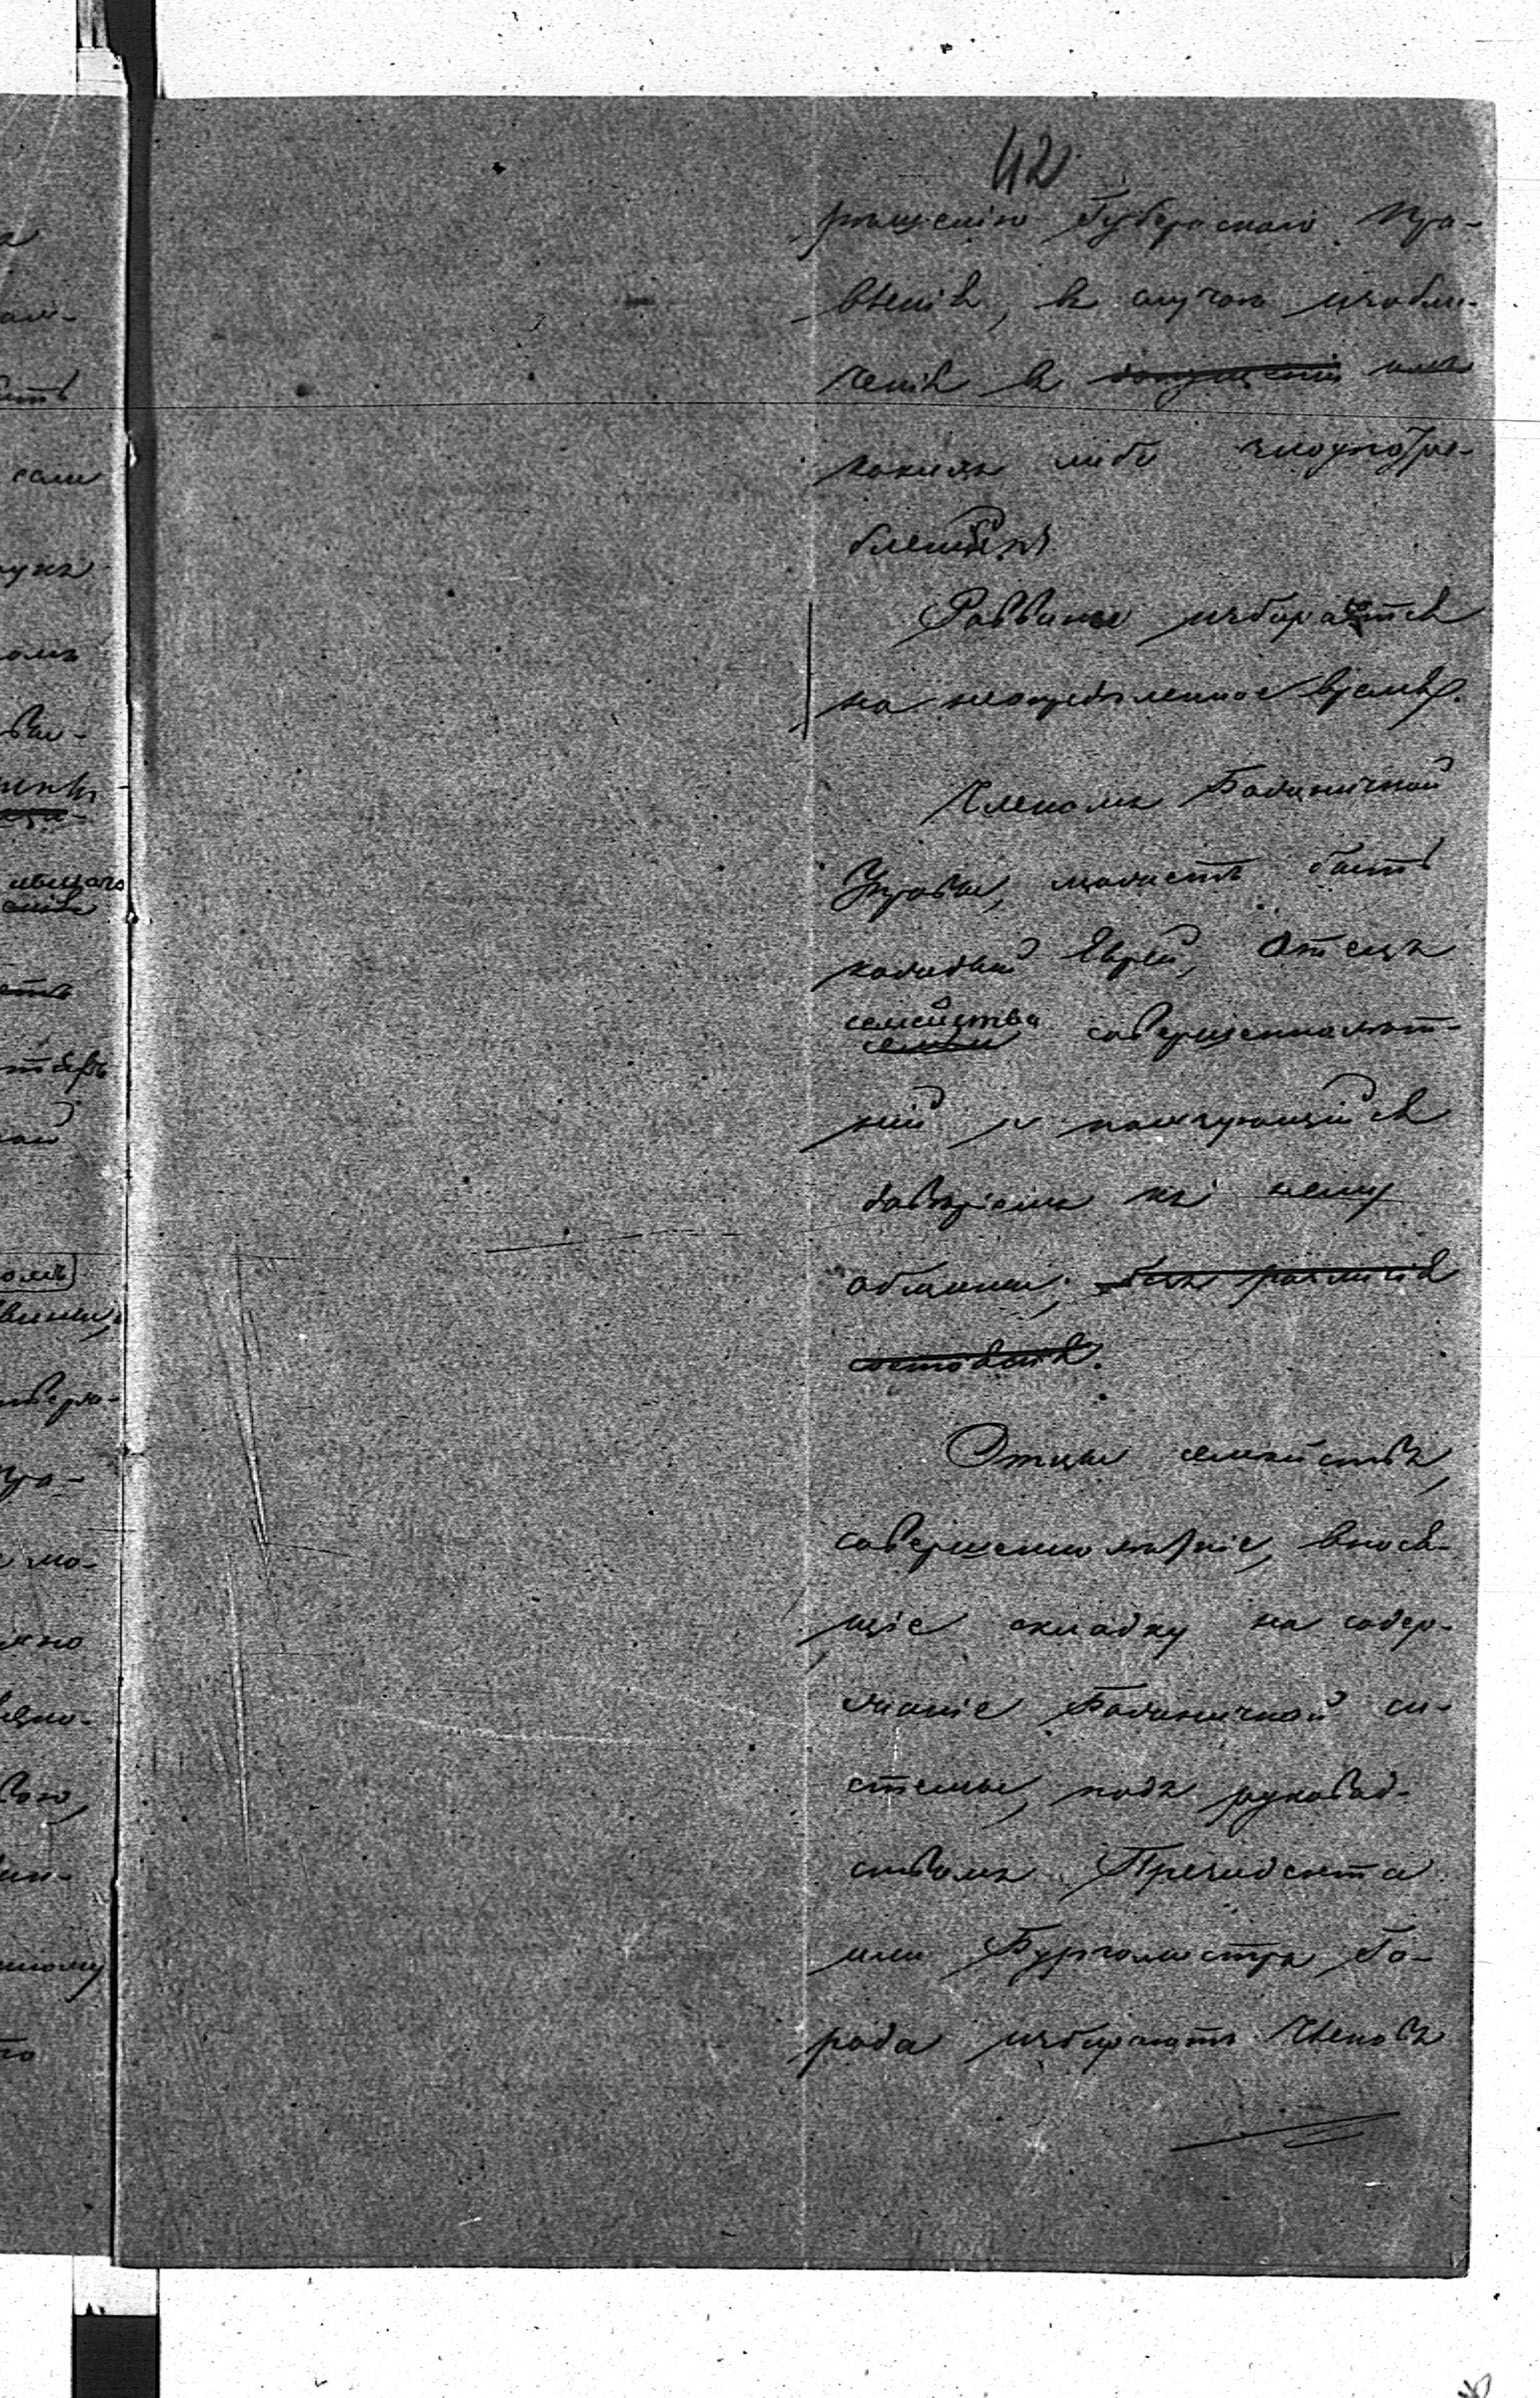 42
рѣшенію Губернскаго Пра-
вленія, въ случаѣ изобли-
ченія въ допущеніи имъ
какихъ либо злоупотре-
бленій.
Раввинъ избирается
на неопредѣленное время.
Членомъ Божничной
Управы, можетъ быть
каждый Еврей, отецъ
семейства
семьи совершеннолѣт-
ній и пользующійся
довѣріемъ къ нему
общины, безъ различія
состоянія.
Отцы семействъ,
совершеннолѣтніе, внося-
щіе складку на содер-
жаніе Божничной си-
стемы, подъ руковод-
ствомъ Президента
или Бургомистра Го-
рода избираютъ Членовъ